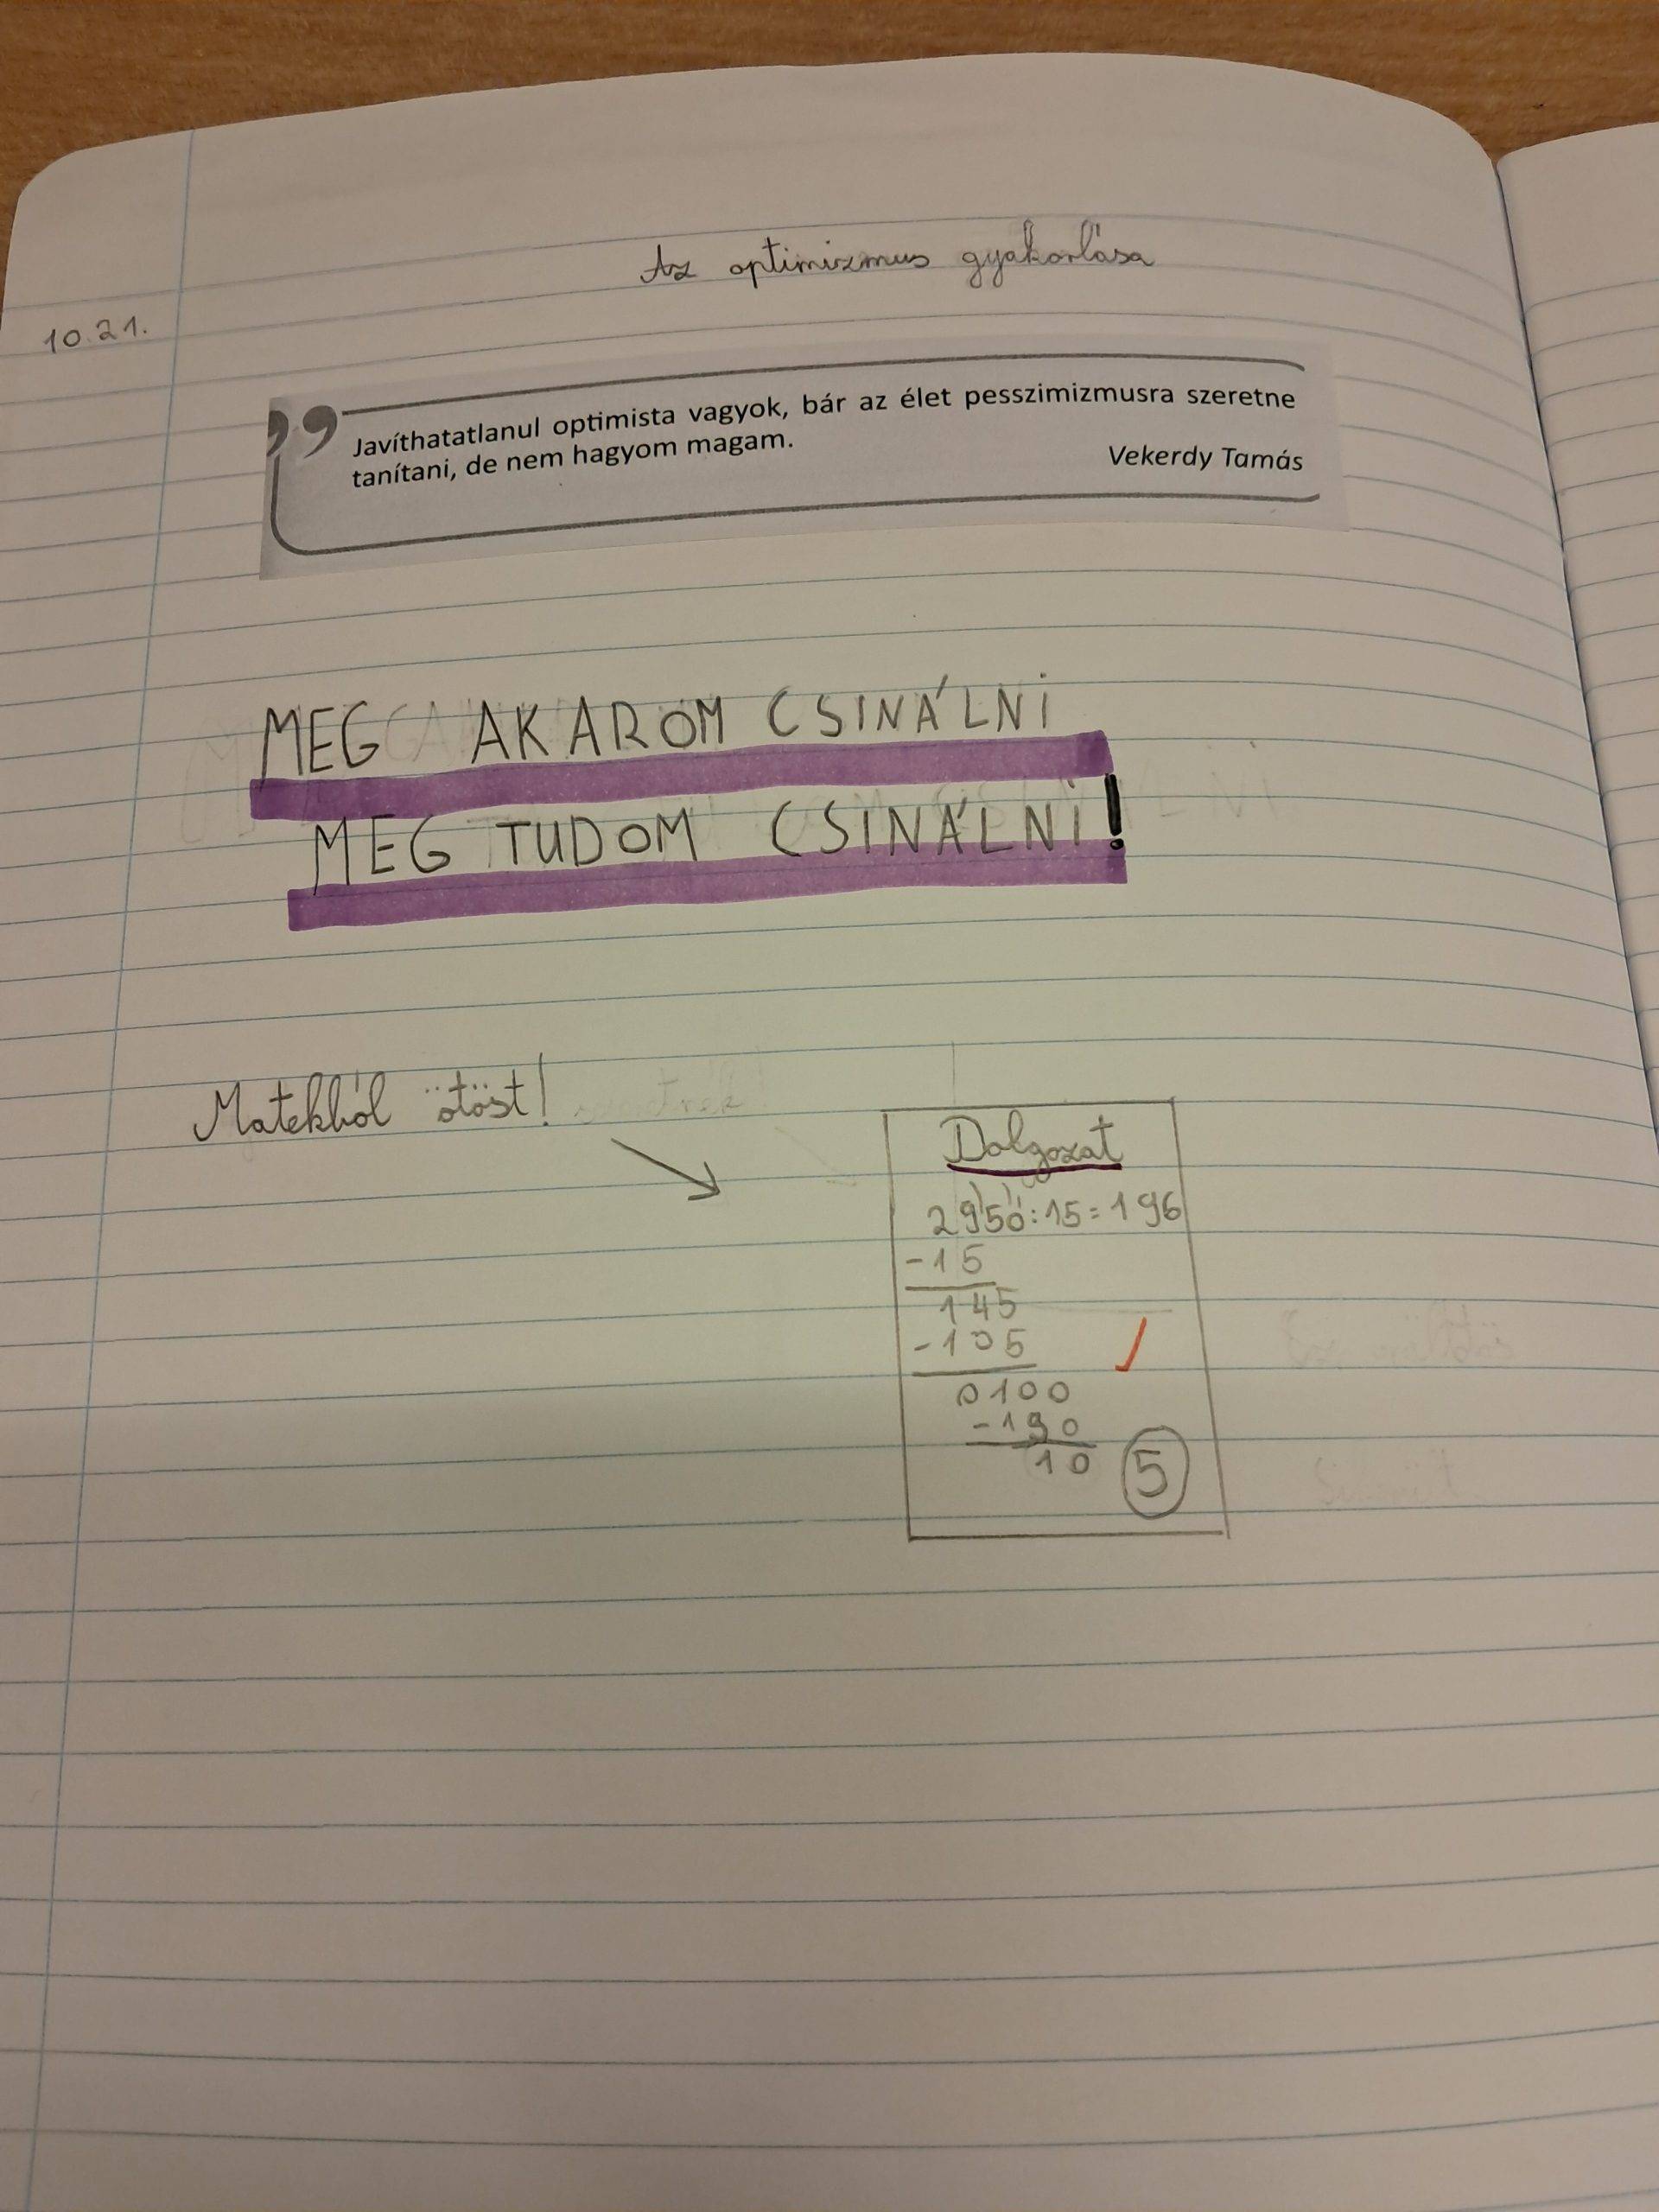 Az optimizmus gyakorlása
10.21.
Javíthatatlanul optimista vagyok, bár az élet pesszimizmusra szeretne
tanítani, de nem hagyom magam.
Vekerdy Tamás
MEG AKAROM CSINÁLNI
MEG TUDOM CSINÁLNI!
Matekból ötöst!
Dolgozat
2950:15=196
-15
145
-105
0100
-190
10
5